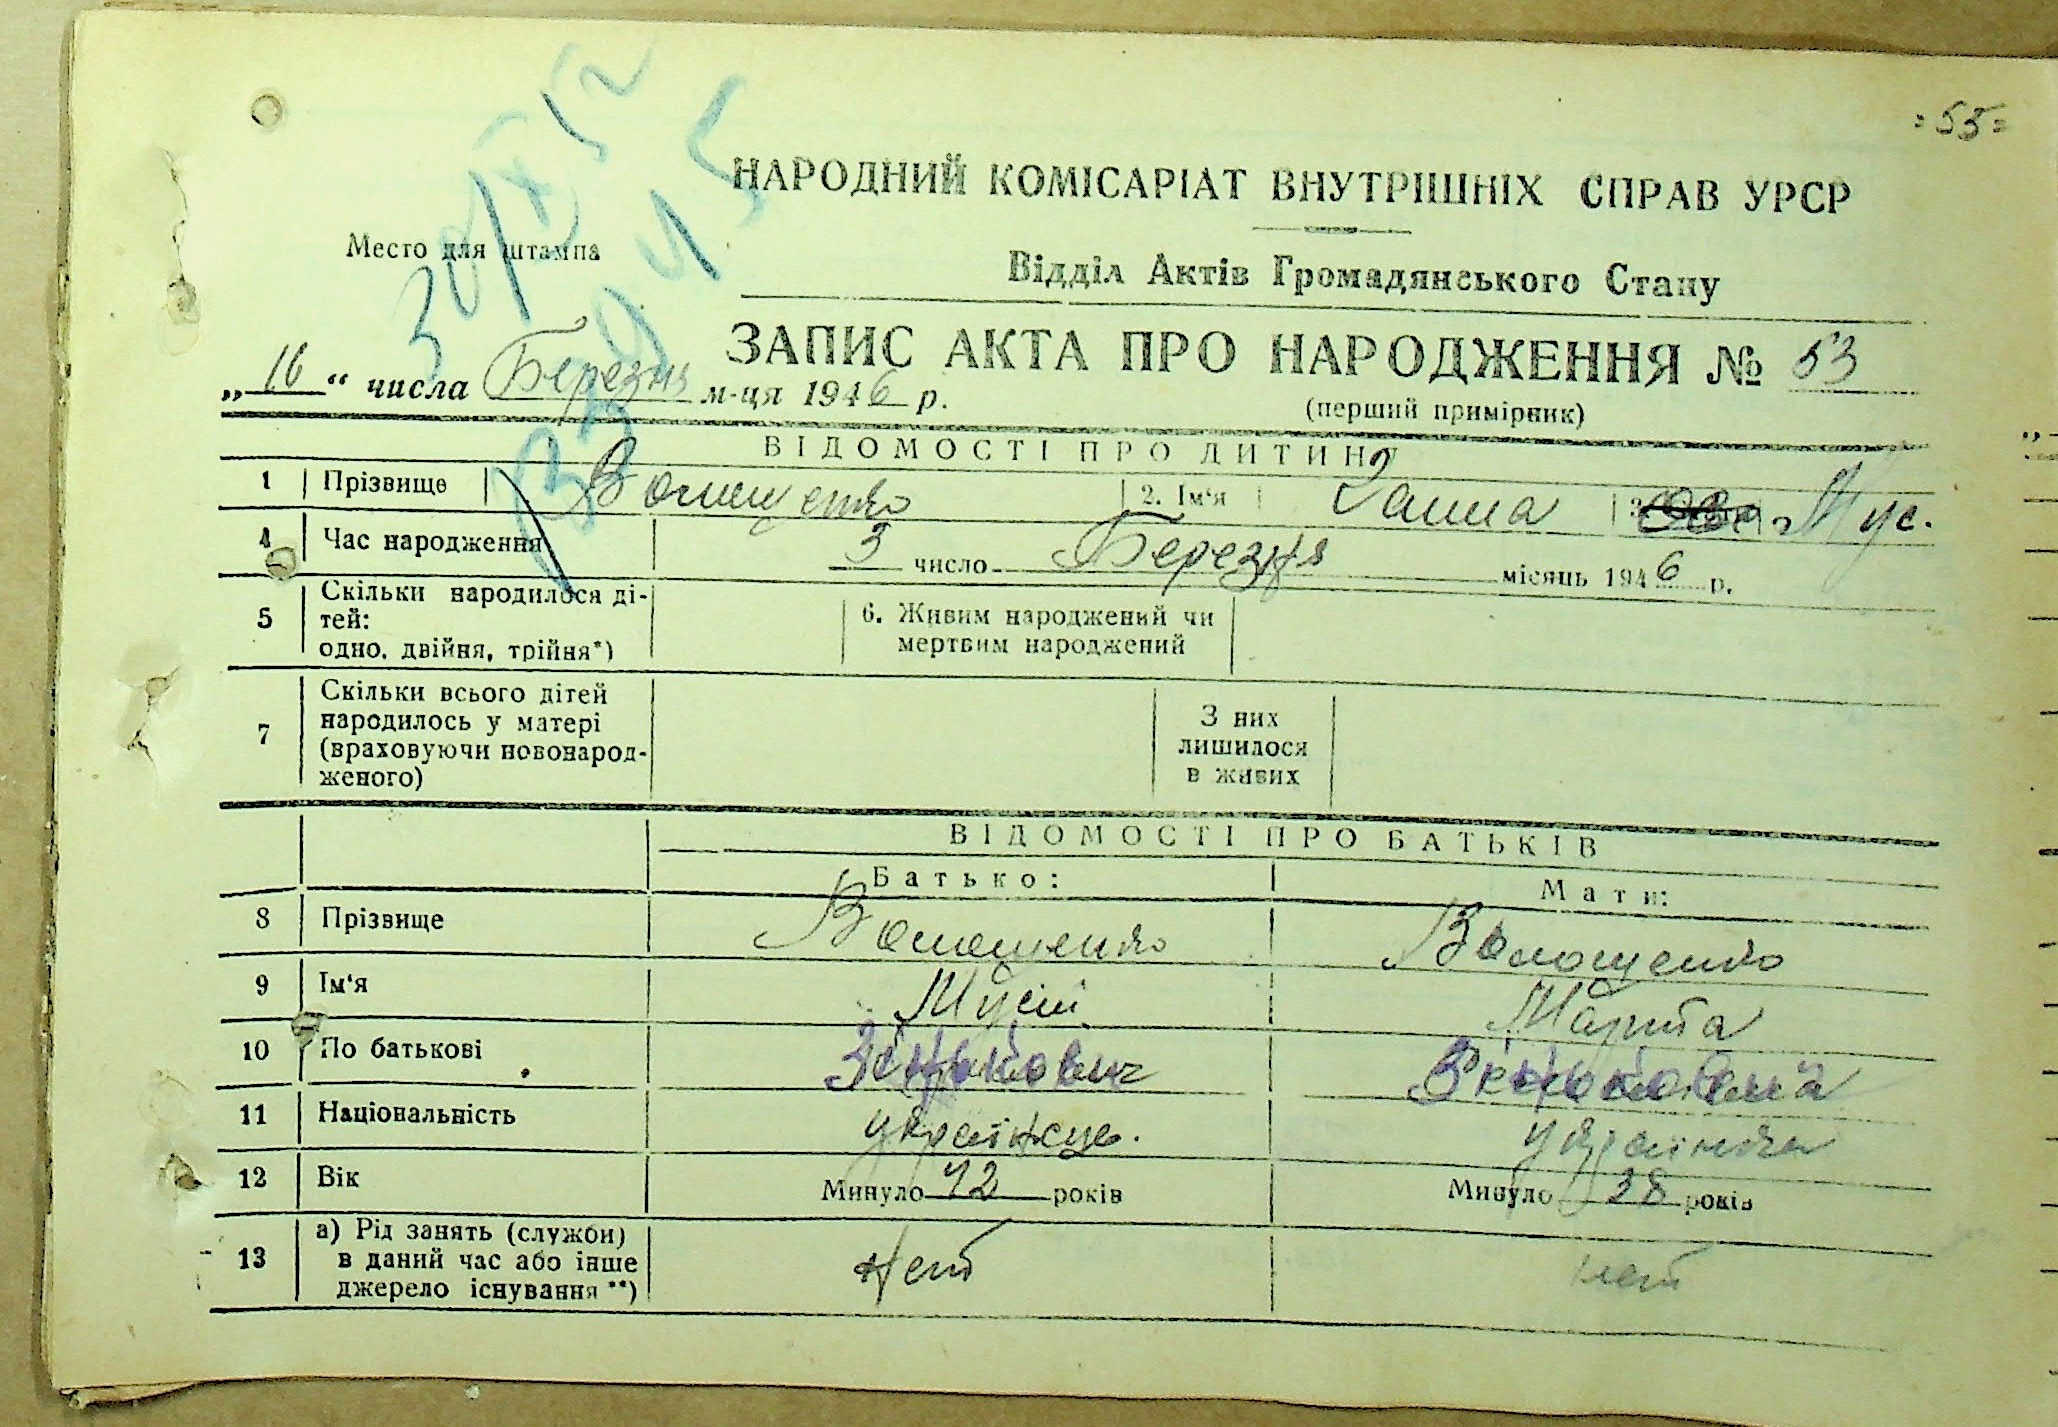 =55=
НАРОДНИЙ КОМІСАРІАТ ВНУТРІШНІХ СПРАВ УРСР
Место для штампа
Відділ Актів Громадянського Стану
ЗАПИС АКТА ПРО НАРОДЖЕННЯ № 53
„16“ числа Березня м-ця 1946 р.
(перший примірник)
ВІДОМОСТІ ПРО ДИТИНУ
1 Прізвище 2. Ім'я Ганна 3. Мус.
4 Час народження 3 число Березня місяць 1946 р.
5 Скільки народилося ді-
тей:
одно, двійня, трійня*)
6. Живим народжений чи
мертвим народжений
7 Скільки всього дітей
народилось у матері
(враховуючи новонарод-
женого)
З них
лишилося
в живих
ВІДОМОСТІ ПРО БАТЬКІВ
Батько: Мати:
8 Прізвище Волощенко Волощенко
9 Ім'я Мусій Марта
10 По батькові Зінькович
11 Національність українець. українка
12 Вік Минуло 42 років Минуло 38 років
13 а) Рід занять (служби)
в даний час або інше
джерело існування **)
нет нет